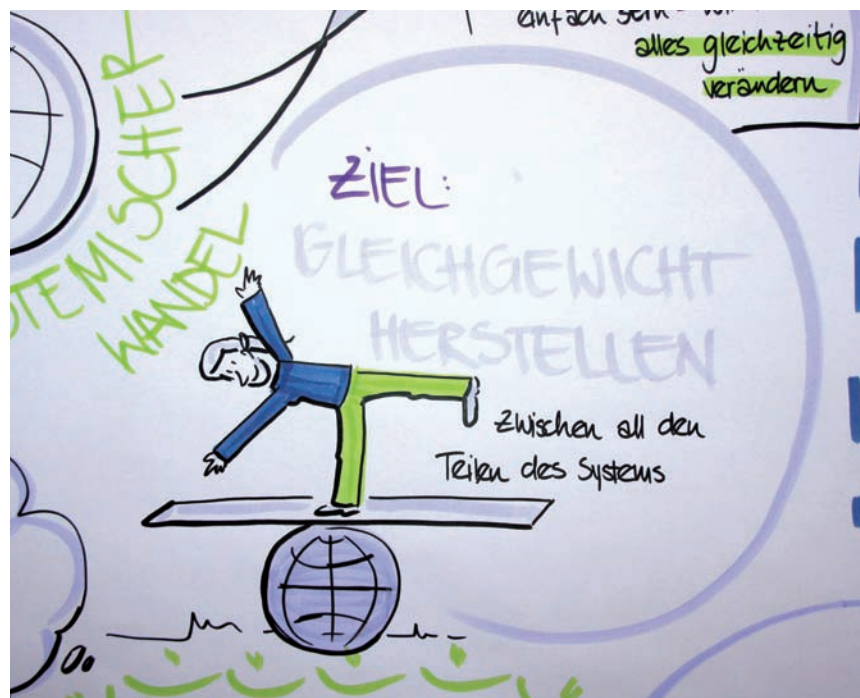 einfach sein
alles gleichzeitig
verändern
SYSTEMISCHER
WANDEL
ZIEL:
GLEICHGEWICHT
HERSTELLEN
Zwischen all den
Teilen des Systems